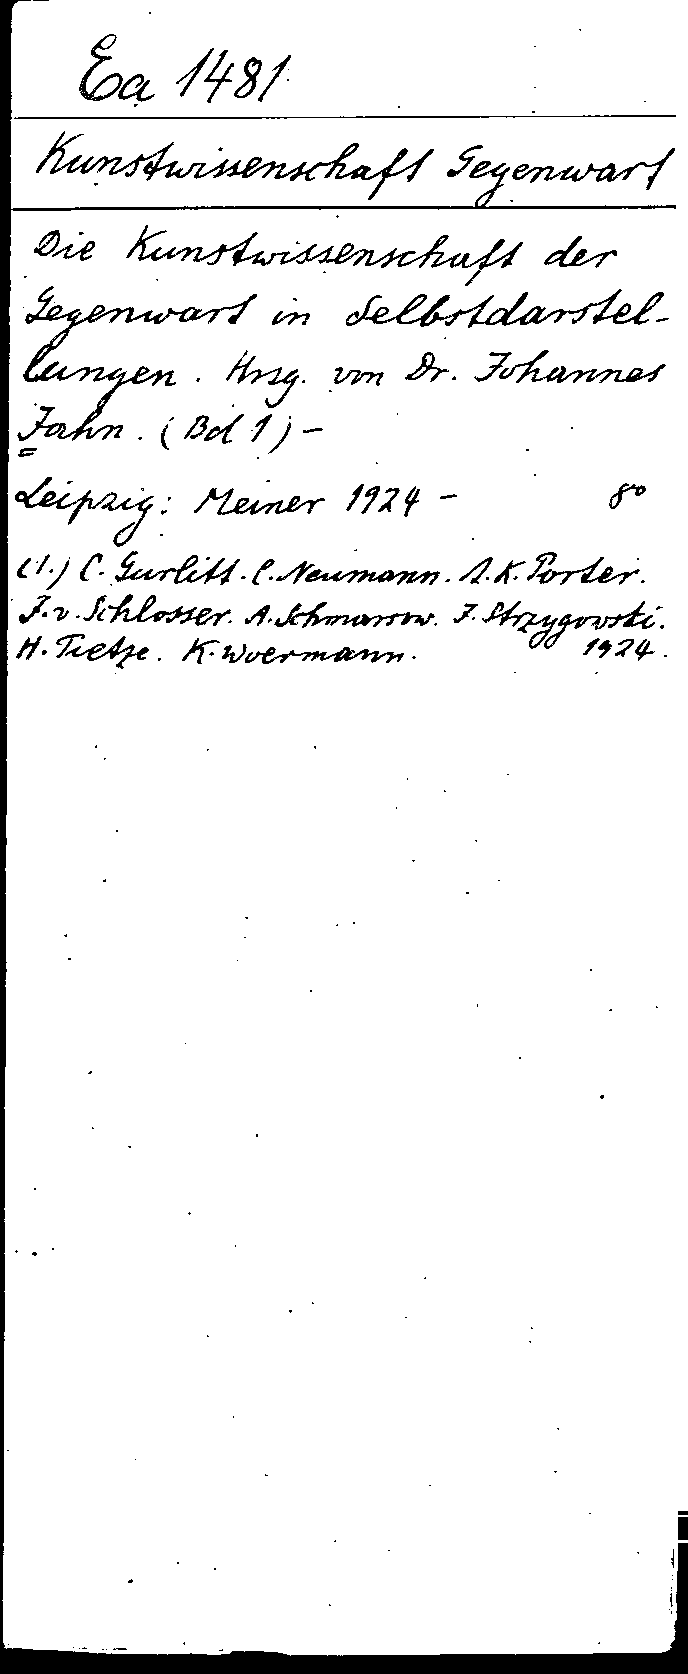 Ea 1481
Kunstwissenschaft Gegenwart
Die Kunstwissenschaft der
Gegenwart in Selbstdarstel-
lungen. Hrsg. von Dr. Johannes
Jahn. (Bd 1) -
Leipzig: Meiner 1924 - 8°
(1.) C. Gurlitt. C. Neumann. A. K. Porter.
J. v. Schlosser. A. Schmarsow. J. Strzygowski.
H. Tietze. K. Woermann. 1924.